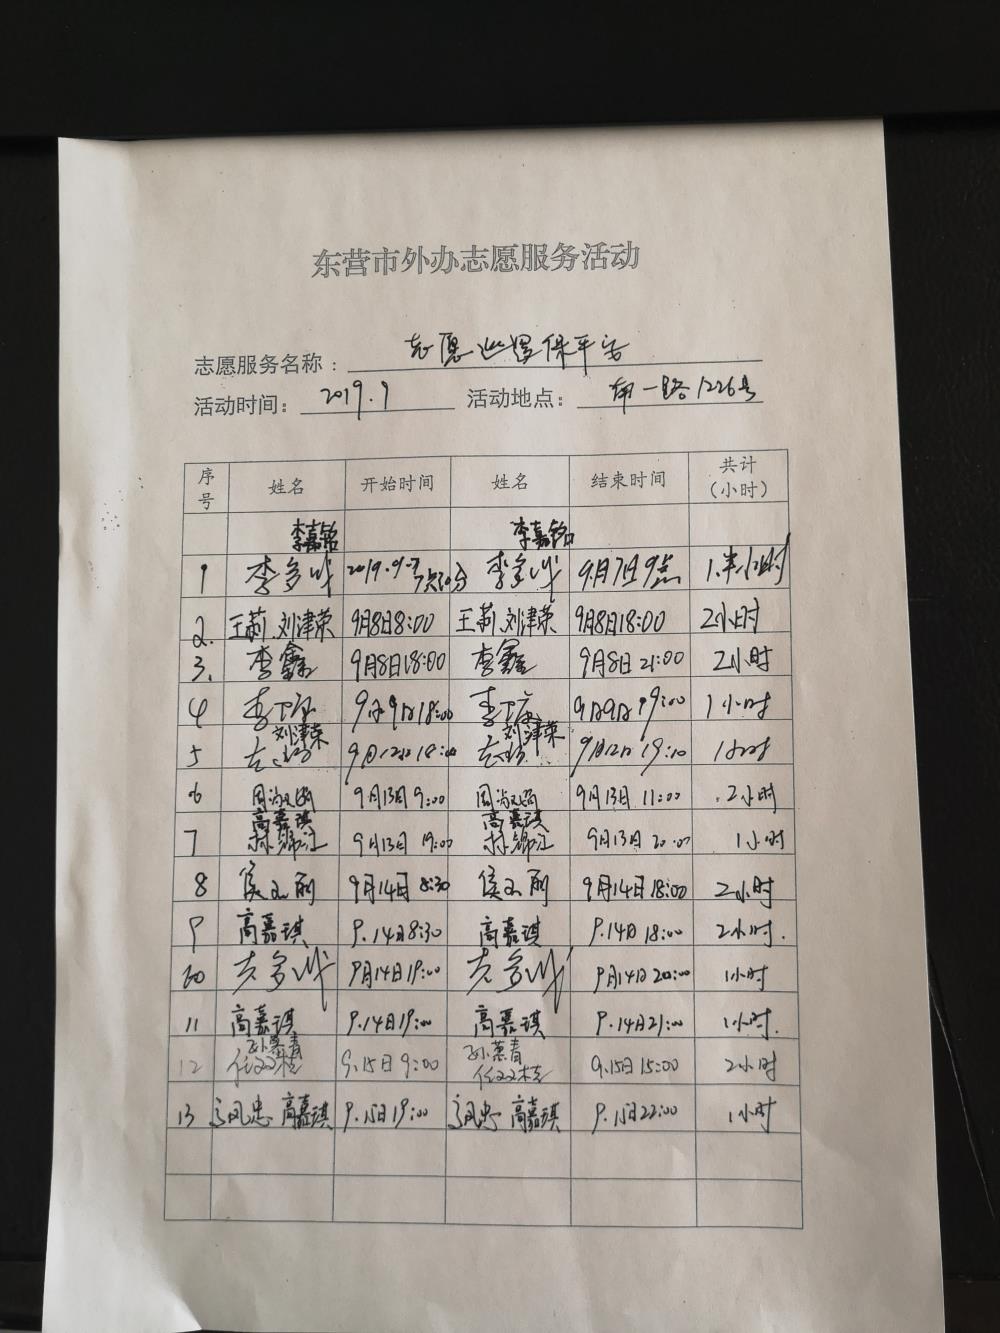 东营市外办志愿服务活动
志愿服务名称： 志愿巡逻保平安
活动时间： 2019.9 活动地点： 南一路1226号
序号 姓名 开始时间 姓名 结束时间 共计（小时）
李嘉铭 李嘉铭
1 2019.9.7 7点30分 9月7日9点 1.半小时
2. 王莉 刘津荣 9月8日8:00 王莉 刘津荣 9月8日18:00 2小时
3. 李鑫 9月8日18:00 李鑫 9月8日21:00 2小时
4 9月9日18:00 9月9日19:00 1小时
刘津荣 刘津荣
5 9月12日18:10 9月12日19:10 1小时
6 9月13日9:00 9月13日11:00 2小时
高嘉琪 高嘉琪
7 林锦江 9月13日19:00 林锦江 9月13日20:00 1小时
8 9月14日8:30 9月14日18:00 2小时
9 高嘉琪 9.14日8:30 高嘉琪 9.14日18:00 2小时.
10 9月14日19:00 9月14日20:00 1小时
11 高嘉琪 9.14日19:00 高嘉琪 9.14日21:00 1小时.
孙慕青 孙慕青
12 9.15日9:00 9.15日15:00 2小时
13 高嘉琪 9.15日19:00 高嘉琪 9.15日22:00 1小时